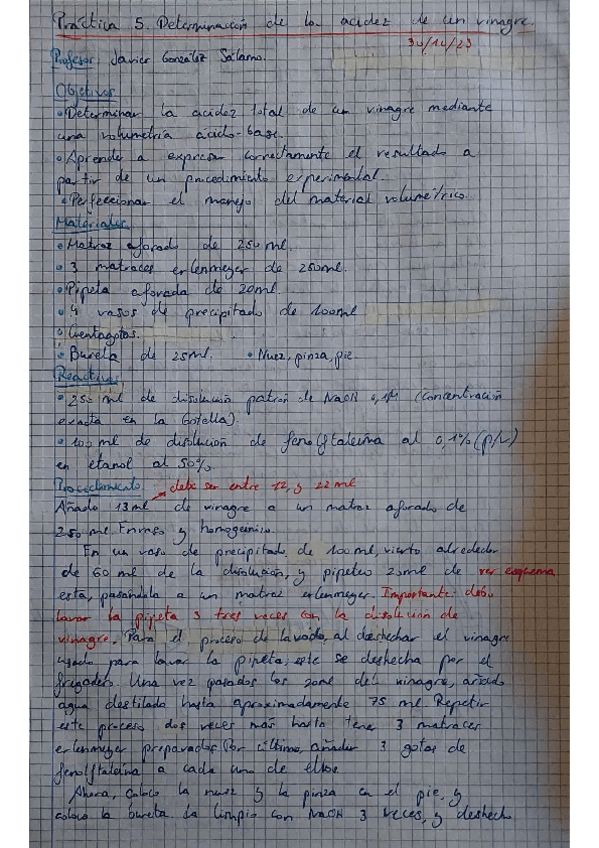 Práctica 5. Determinación de la acidez de un vinagre.
30/10/23
Profesor: Javier González Sálamo.
Objetivos
• Determinar la acidez total de un vinagre mediante
una volumetría ácido-base.
• Aprender a expresar correctamente el resultado a
partir de un procedimiento experimental.
• Perfeccionar el manejo del material volumétrico.
Materiales
• Matraz aforado de 250 ml.
• 3 matraces erlenmeyer de 250ml.
• Pipeta aforada de 20ml.
• 4 vasos de precipitado de 100ml
• Cuentagotas.
• Bureta de 25ml. • Nuez, pinza, pie.
Reactivos
• 250 ml de disolución patrón de NaOH 0,1M (concentración
exacta en la botella).
• 100 ml de disolución de fenolftaleína al 0,1% (p/v)
en etanol al 50%
Procedimiento → debe ser entre 12, y 22 ml
Añado 13ml de vinagre a un matraz aforado de
250 ml. Enraso y homogenizo.
En un vaso de precipitado de 100ml, vierto alrededor
de 60 ml de la disolución, y pipeteo 20ml de ver esquema
esta, pasándola a un matraz erlenmeyer. Importante: debo
lavar la pipeta 3 tres veces con la disolución de
vinagre. Para el proceso de lavado, al deshechar el vinagre
usado para lavar la pipeta, este se deshecha por el
fregadero. Una vez pasados los 20ml de vinagre, añado
agua destilada hasta aproximadamente 75 ml. Repetir
este proceso dos veces más hasta tener 3 matraces
erlenmeyer preparados. Por último, añadir 3 gotas de
fenolftaleína a cada uno de ellos.
Ahora, coloco la nuez y la pinza en el pie, y
coloco la bureta. La limpio con NaOH 3 veces, y deshecho